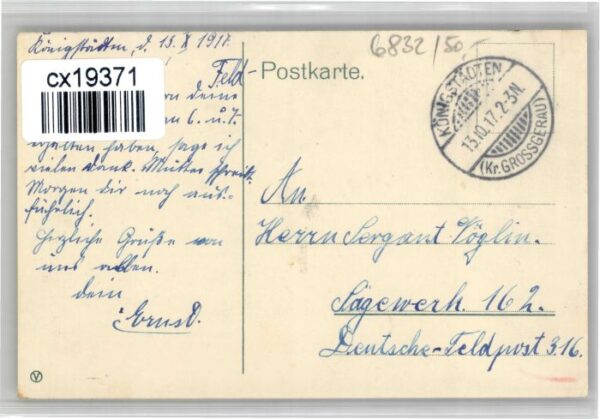 6832/50-
Königstädten, d. 13. X 1917.
cx19371
Feld-Postkarte.
KÖNIGSTÄDTEN
13.10.17. 2-3N.
(Kr. GROSSGERAU)
deine
6. u. 7.
erhalten haben, sage ich
vielen dank. Mutter schreibt
Morgen dir noch aus-
führlich.
Herzliche Grüße von
uns allen.
dein
Ernst.
An
Herrn Sergant Vöglin.
Sägewerk. 162.
Deutsche-Feldpost 316.
V